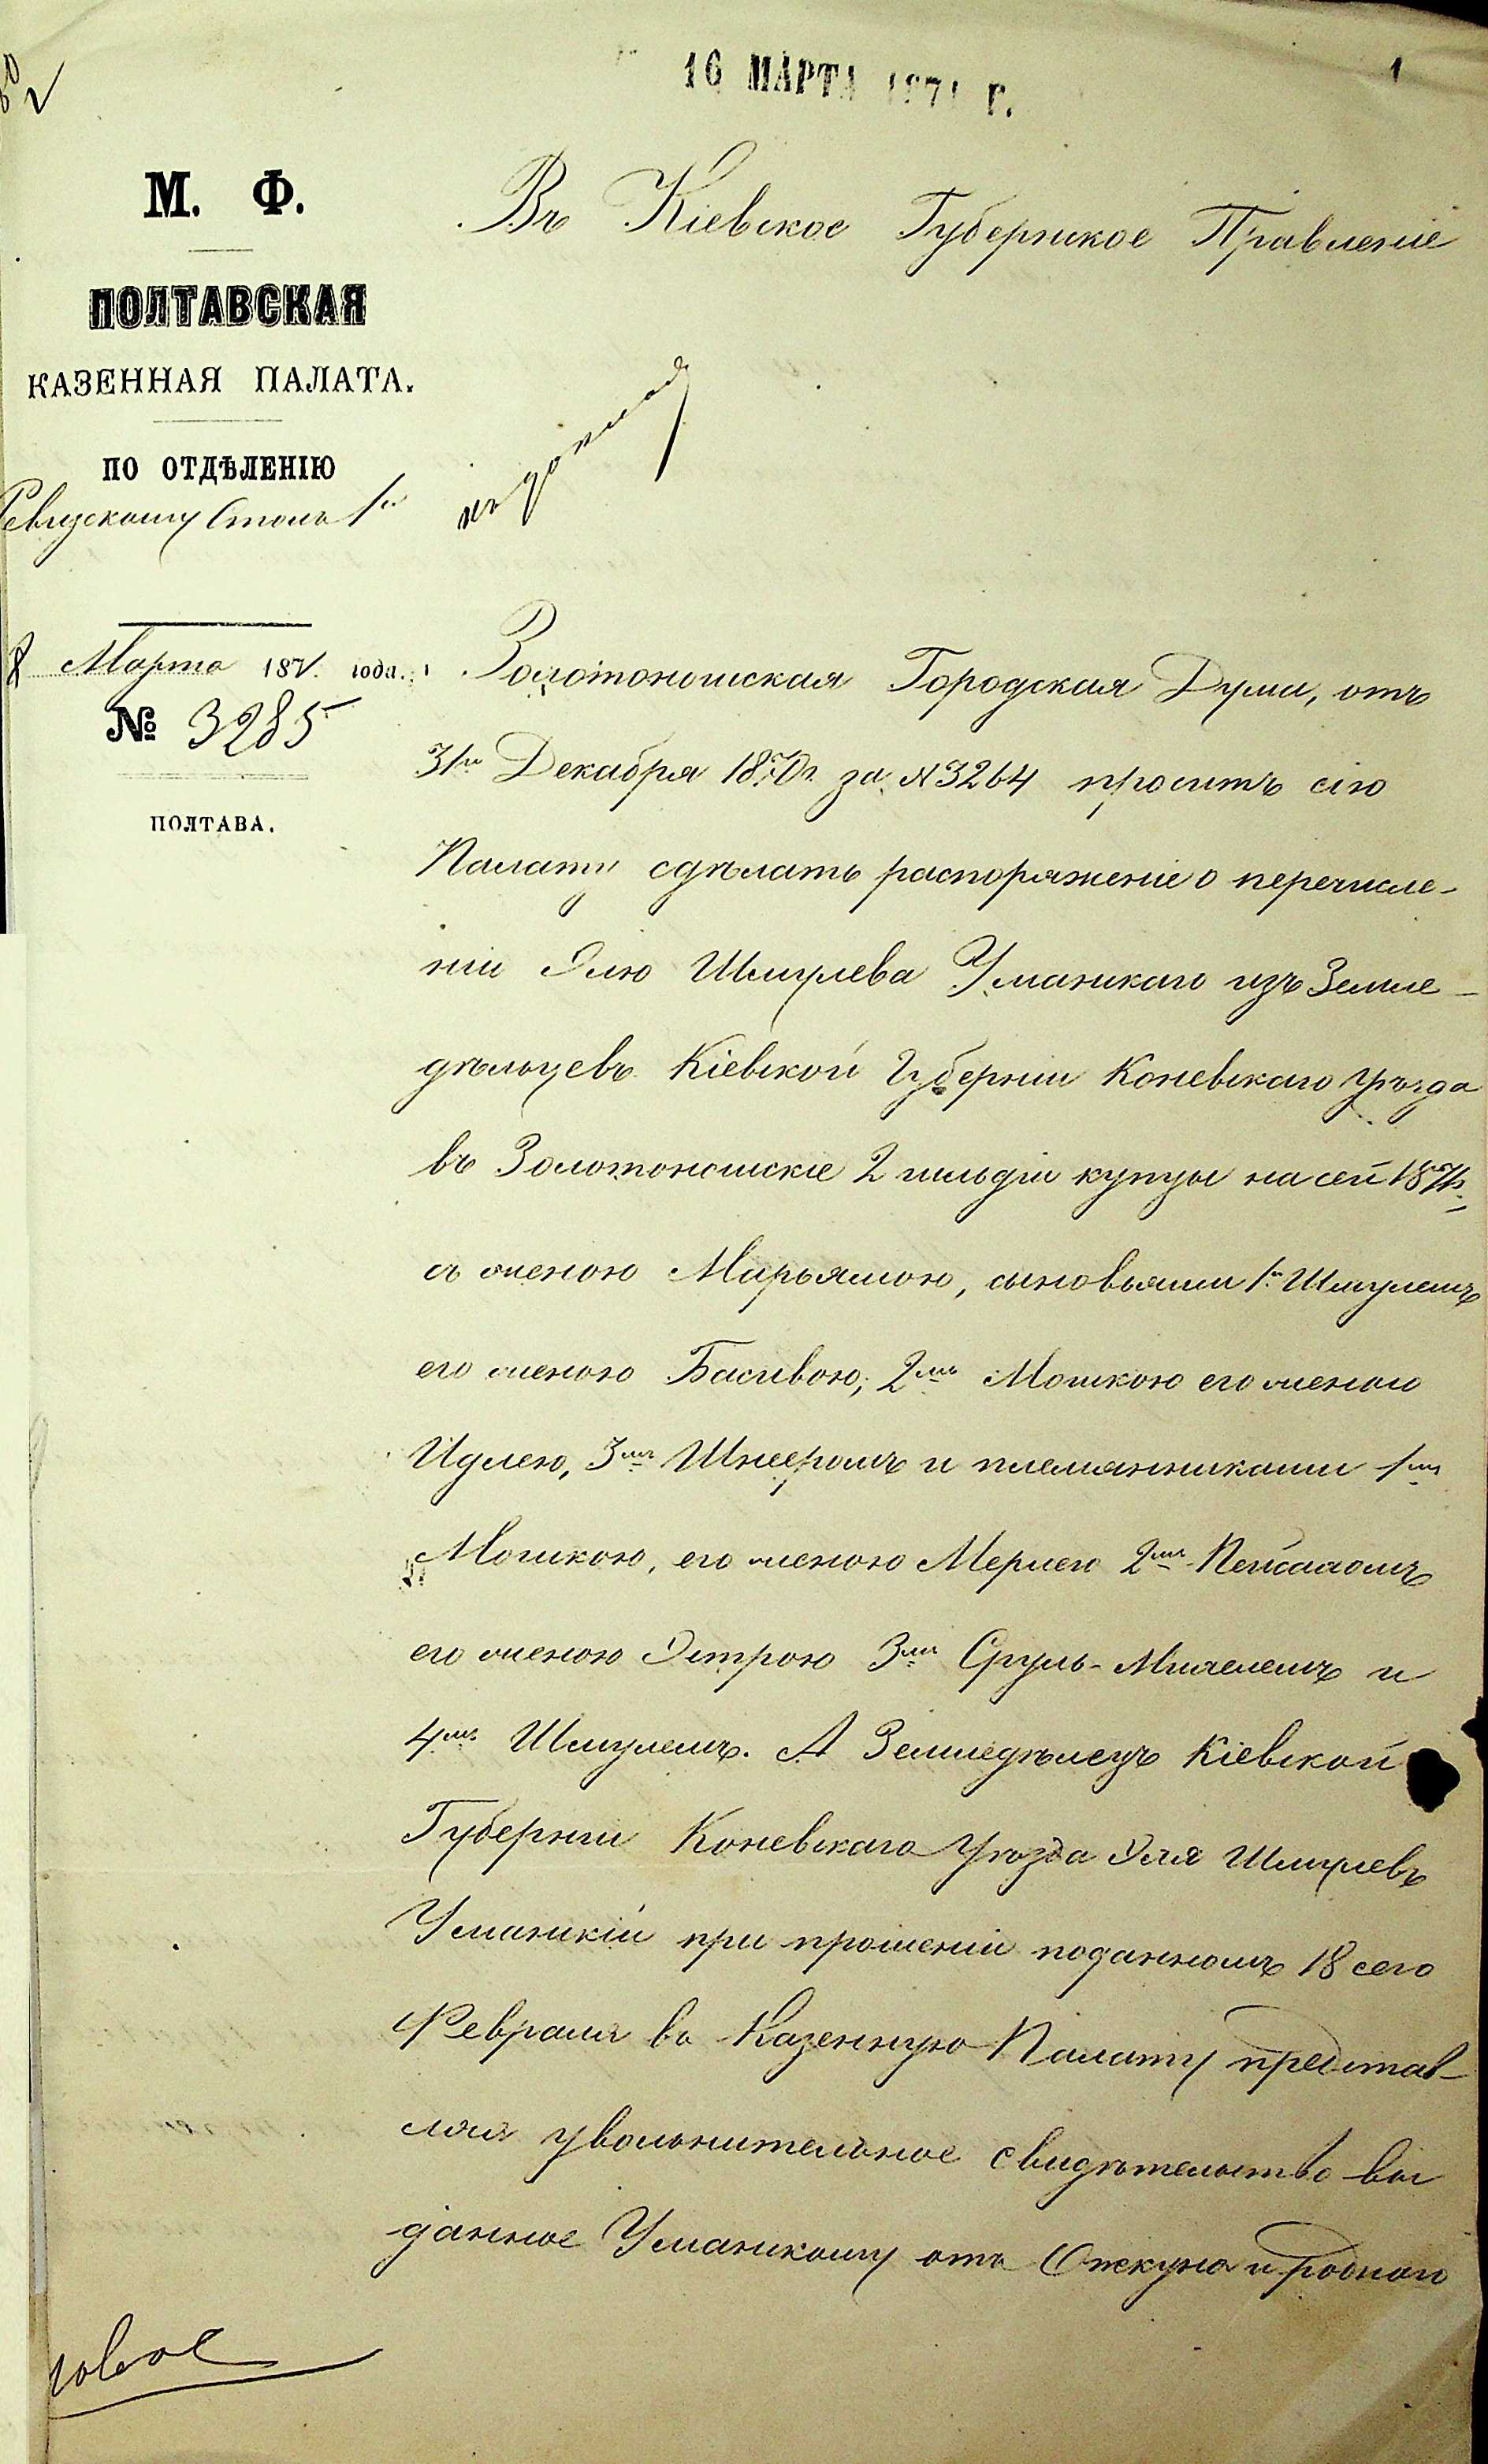 16 МАРТА 1871 Г.
1
М. Ф.
ПОЛТАВСКАЯ
КАЗЕННАЯ ПАЛАТА.
ПО ОТДѢЛЕНІЮ
Ревизскому Столъ 1й
8 Марта 1871 года.
№ 3285
ПОЛТАВА.
Въ Кіевское Губернское Правленіе
къ докладу
Золотоношская Городская Дума, отъ
31го Декабря 1870г. за №3264 проситъ сію
Палату сдѣлать распоряженіе о перечисле-
ніи Элю Шмулева Уманскаго изъ Земле-
дѣльцевъ Кіевской Губерніи Коневскаго уѣзда
въ Золотоношскіе 2 гильдіи купцы на сей 1871г.
съ женою Марьямою, сыновьями 1мъ Шмулемъ
его женою Басивою, 2мъ Мошкою его женою
Идлею, 3мъ Шнееромъ и племянниками 1мъ
Мошкою, его женою Мерлею 2мъ Пейсахомъ
его женою Эстрою 3мъ Сруль-Михелемъ и
4мъ Шмулемъ. А Земледѣлецъ Кіевской
Губерніи Коневскаго Уѣзда Эля Шмулевъ
Уманскій при прошеніи поданномъ 18 сего
Февраля въ Казенную Палату представ-
ляя увольнительное свидѣтельство вы
данное Уманскому отъ Опекуна и роднаго